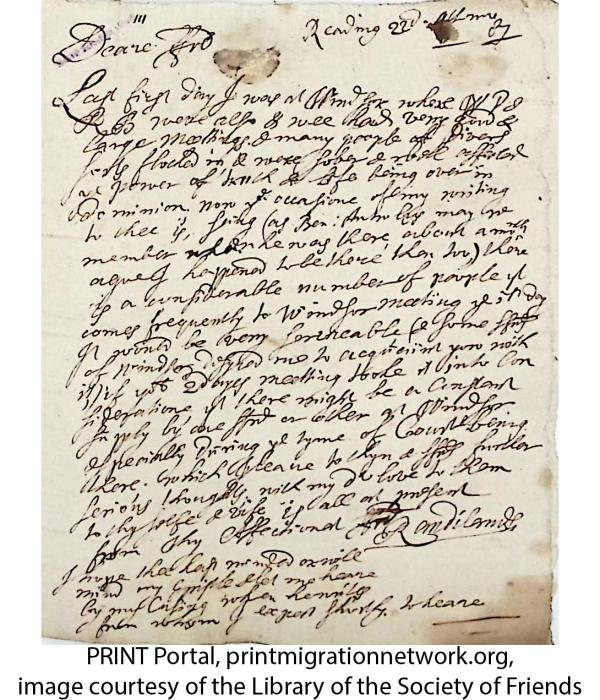 Deare Frd
Reading 22d
Last first day I was at Windsor where WP &
RB were also & wee had very good &
large meetings & many people of divers
sorts flocked in & were sober & well affected
ye power of truth & life being over in
dominion now ye occasione of my writing
to thee is, seing (as Ben: Antrobus may re
member when he was there about a mnth
agoe I happened to be there then too,) there
is a considerable number of people yt
comes frequently to Windsor meeting ye 1st day
It would be very serviceable (& some ffrds
of Windsor desired me to acquaint you with
it) if yor 2dayes meeting tooke it into Con
sideratione yt there might be a Constant
supply by one ffrd or other at Windsor
Especially during ye tyme of Court being
there. which I leave to thyn & ffrds further
serious thoughts. with my dr love to them
to thy selfe & wife is all at present
from thy Affectionat Frd
R Sandilands
I hope thee hast minded or will
mind my Epistle & let me heare
from whom I expect shortly to heare
PRINT Portal, printmigrationnetwork.org,
image courtesy of the Library of the Society of Friends